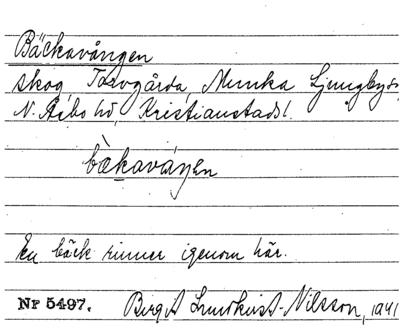 Bäckavången
skog, Torvgårda, Munka Ljungbys,
N. Åsbo hd, Kristianstads l.
bækavåŋen
En bäck rinner igenom här.
Nr 5497. Birgit Lundkvist-Nilsson, 1941